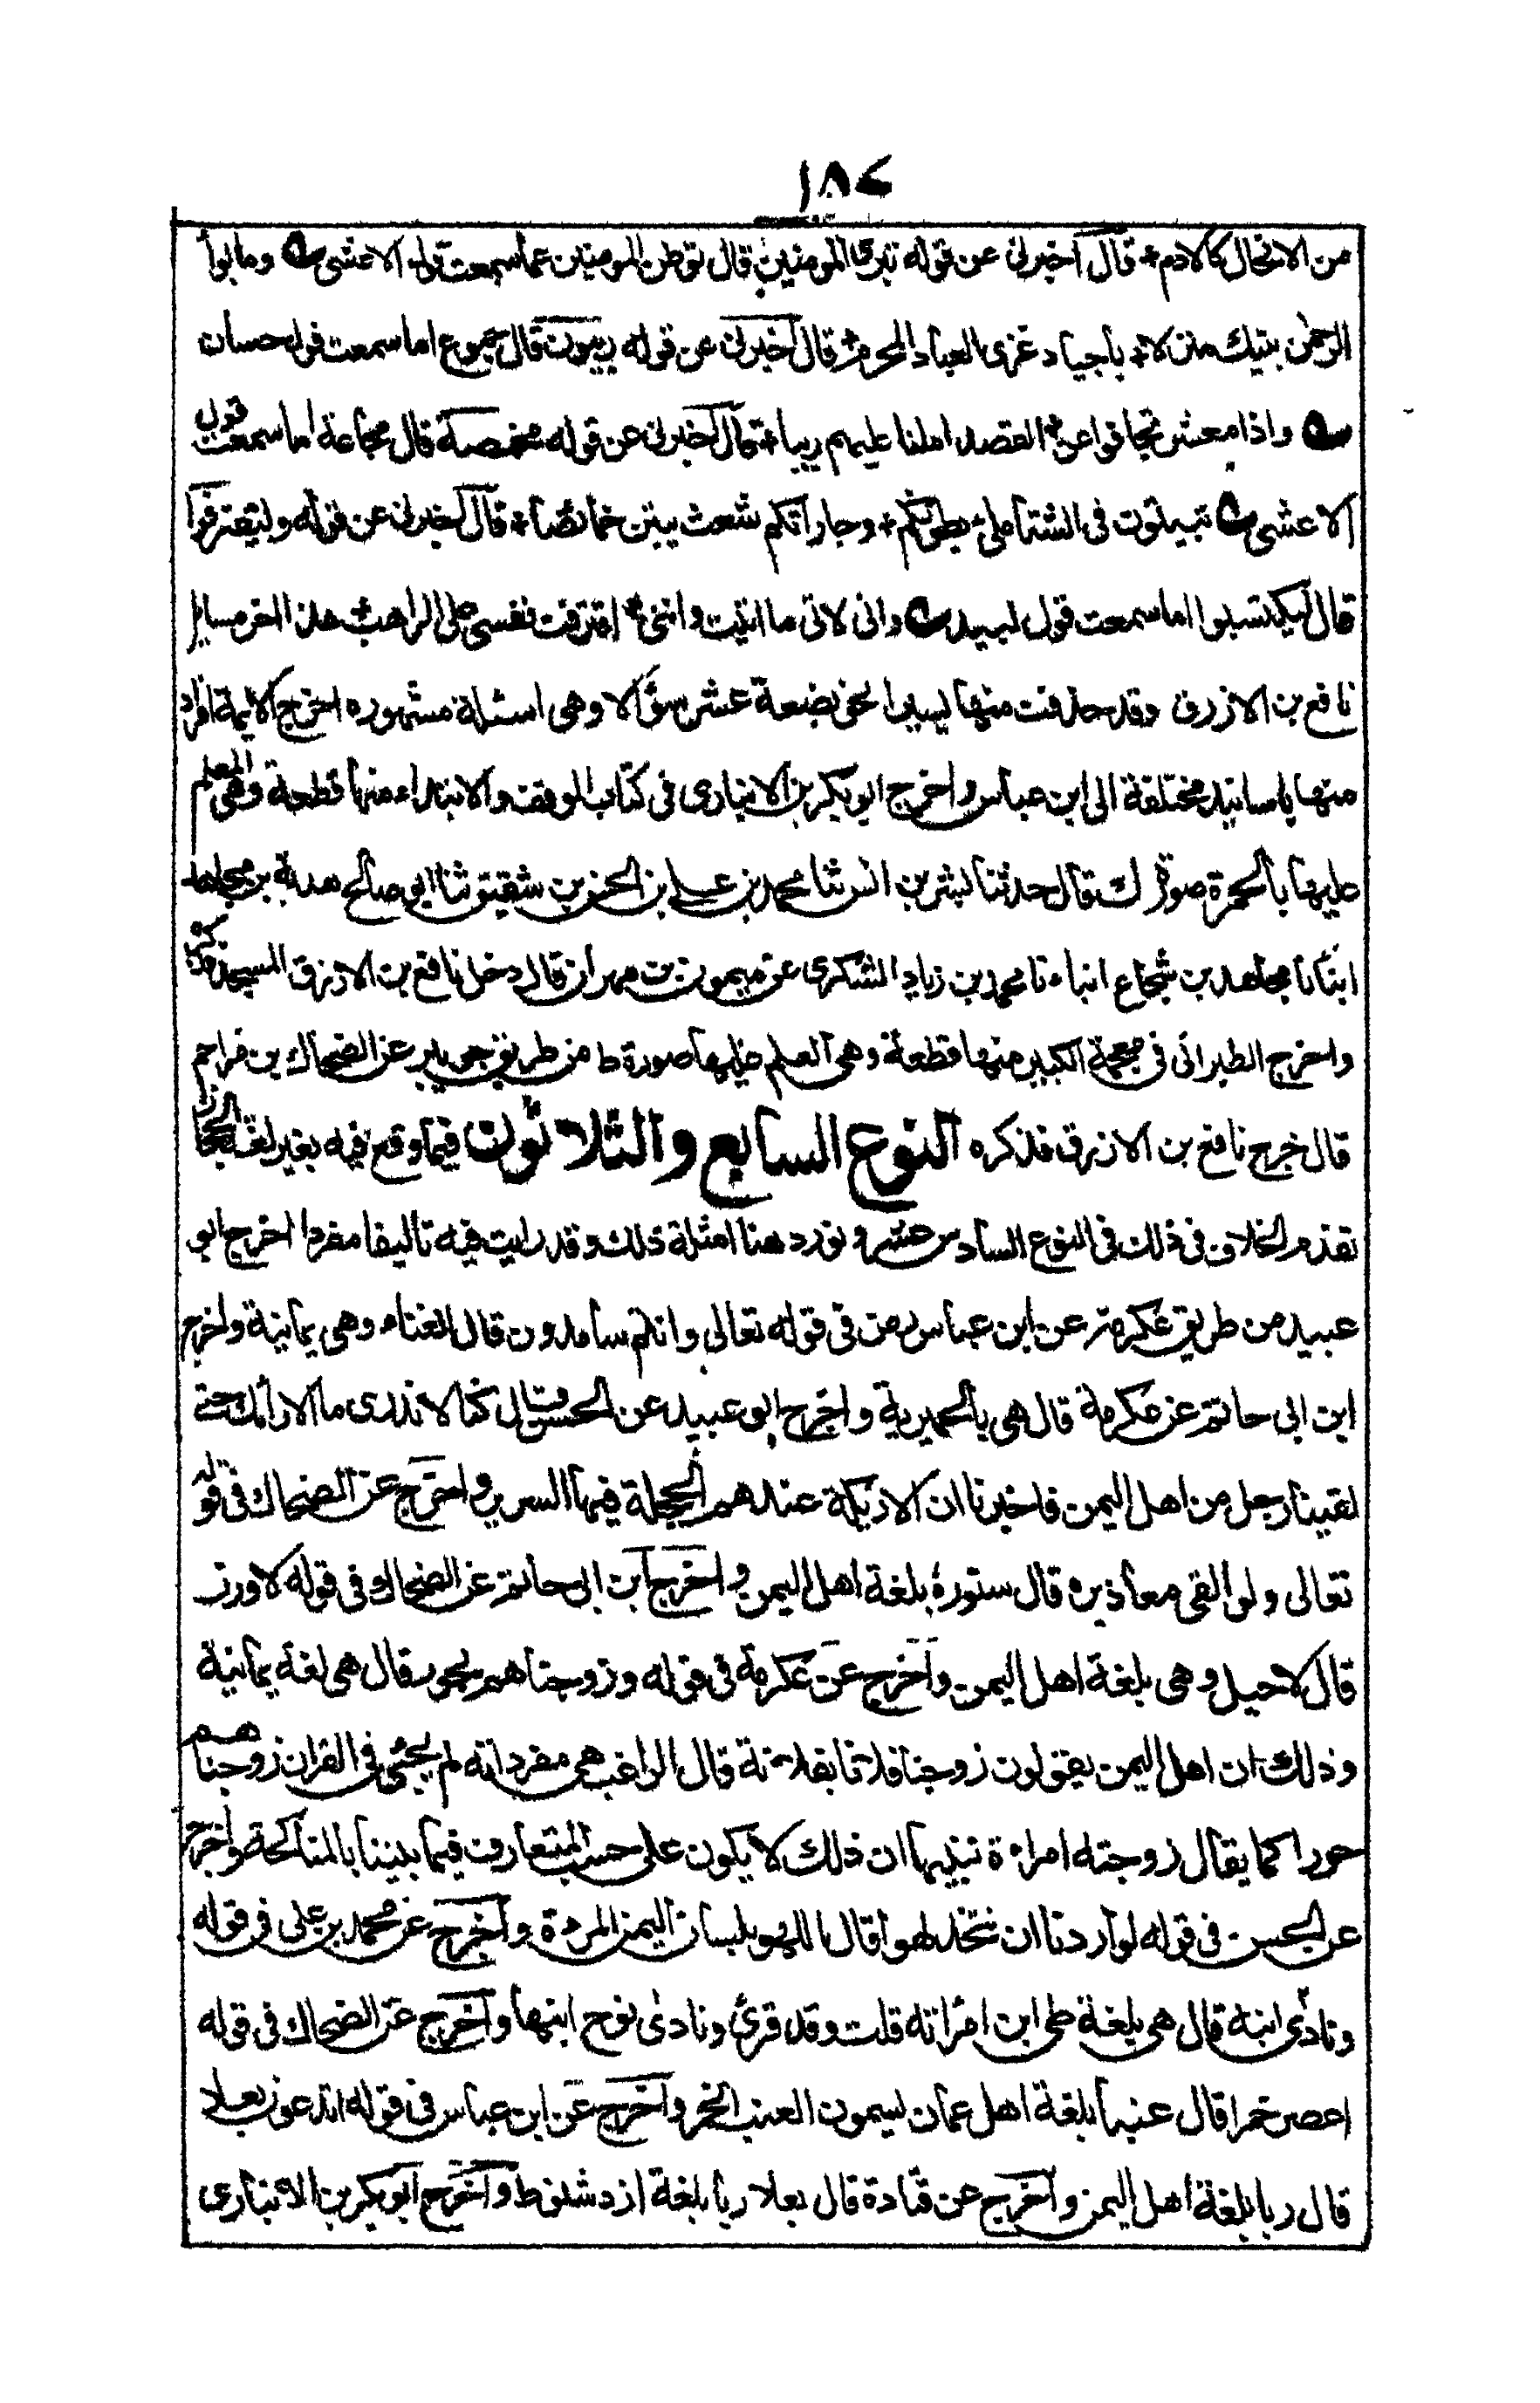 ١٨٤
من الامحال كالادم ٭ قال اخبرنى عن قوله تبوئ المومنين قال توطن المومنين اما سمعت قول الاعشى وما بوأ
الرحمن بيتك منزلا ٭ باجياد غربى العباد المحرم ٭ قال اخبرنى عن قوله ربيون قال جموع اما سمعت قول حسان
واذا معشر تجافوا عن القصد املنا عليهم ربيا ٭ قال اخبرنى عن قوله مخمصة قال مجاعة اما سمعت قول
الاعشى تبيتون فى الشتا ملئ بطونكم ٭ وجاراتكم شعث يبتن خمائصا ٭ قال اخبرنى عن قوله وليقترفوا
قال ليكتسبوا اما سمعت قول لبيد وانى لاتى ما اتيت واننى ٭ اقترفت نفسى على الراهب هذا اخر مسايل
نافع بن الازرق وقد حذفت منها يسيرا نحو بضعة عشر سؤالا وهى اسئلة مشهوره اخرج الايمة افراد
منها باسانيد مختلفة الى ابن عباس واخرج ابو بكر بن الانبارى فى كتاب الوقف والابتداء منها قطعة وهى المعلم
عليها بالحمرة صورة ك قال حدثنا بشر بن انس ثنا محمد بن على بن الحسن بن شقيق ثنا ابو صالح هدبة بن مجاهد
ابنانا مجاهد بن شجاع انباءنا محمد بن زياد اليشكرى عن ميمون بن مهران قال دخل نافع بن الازرق المسجد فذكره
واخرج الطبرانى فى معجمة الكبير منها قطعة وهى المعلم عليها صورة ط من طريق جويبر عن الضحاك بن مزاحم
قال خرج نافع بن الازرق فذكره النوع السابع والثلاثون فيما وقع فيه بغير لغة الحجاز
تقدم الخلاف فى ذلك فى النوع السادس عشر ونورد هنا امثلة ذلك وقد رايت فيه تاليفا مفردا اخرج ابو
عبيد من طريق عكرمة عن ابن عباس رض فى قوله تعالى وانتم سامدون قال الغناء وهى يمانية واخرج
ابن ابى حاتم عن عكرمة قال هى بالحميرية واخرج ابو عبيد عن الحسن قال كنا لا ندرى ما الارائك حتى
لقينا رجل من اهل اليمن فاخبرنا ان الاريكة عندهم الحجلة فيها السرير واخرج عن الضحاك فى قوله
تعالى ولو القى معاذيره قال ستوره بلغة اهل اليمن واخرج ابن ابى حاتم عن الضحاك فى قوله لا وزر
قال لا حيل وهى بلغة اهل اليمن واخرج عن عكرمة فى قوله وزوجناهم بحور قال هى لغة يمانية
وذلك ان اهل اليمن يقولون زوجنا فلانا بفلانة قال الراغب فى مفرداته لم يجئ فى القران زوجناهم
حورا كما يقال زوجته امراءة تنبيها ان ذلك لا يكون على حسب المتعارف فيما بيننا بالمناكحة واخرج
عن الحسن فى قوله لو اردنا ان نتخذ لهوا قال اللهو بلسان اليمن المرءة واخرج عن محمد بن على فى قوله
ونادى ابنه قال هى بلغة طى ابن امراته قلت وقد قرئ ونادى نوح ابنها واخرج عن الضحاك فى قوله
اعصر خمرا قال عنبا بلغة اهل عمان يسمون العنب الخمر واخرج عن ابن عباس فى قوله اتدعون بعلا
قال ربا بلغة اهل اليمن واخرج عن قتادة قال بعلا ربا بلغة ازد شنوط واخرج ابو بكر بن الانبارى